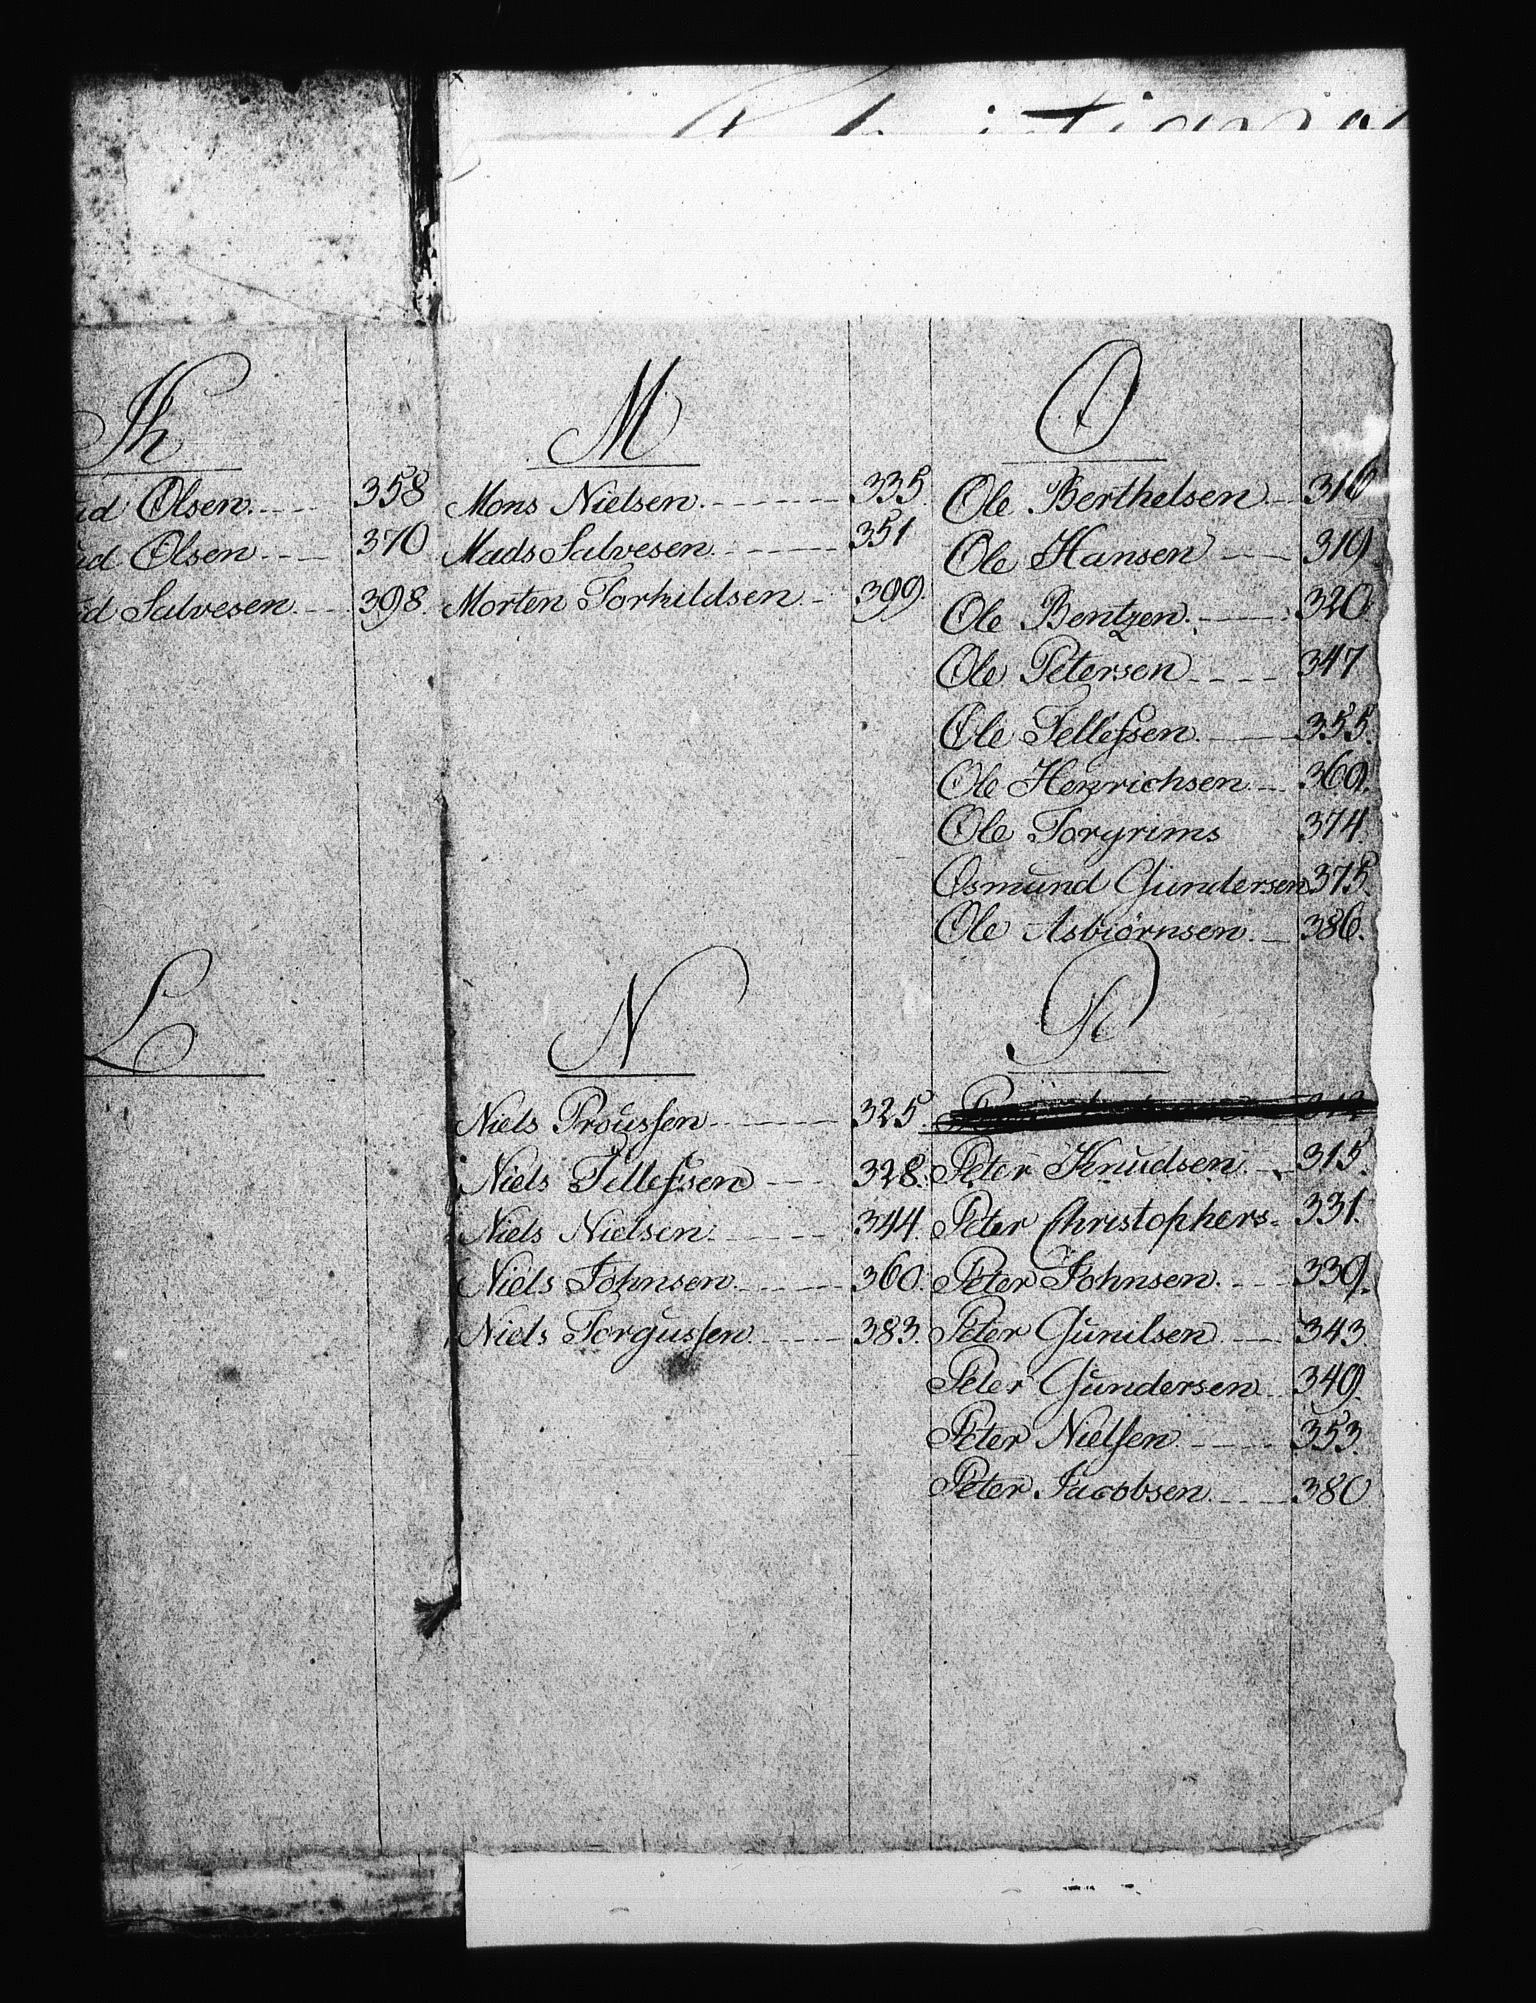 Christians
K
Olsen 358
Olsen 370
Salvesen 398.
L
M
Mons Nielsen 335.
Mads Salvesen 351
Morten Torkildsen 399.
N
Niels Proussen 325.
Niels Tellefsen 328.
Niels Nielsen 344.
Niels Johnsen 360.
Niels Torgussen 383.
O
Ole Berthelsen 316
Ole Hansen 319
Ole Bentzen 320.
Ole Petersen 347
Ole Tellefsen 355.
Ole Henrichsen 369.
Ole Torgrims 374
Osmund Gundersen 375.
Ole Asbiörnsen 386.
P
Peter Knudsen 315.
Peter Christophers 331.
Peter Johnsen 339.
Peter Gunilsen 343.
Peter Gundersen 349.
Peter Nielsen 353
Peter Jacobsen 380